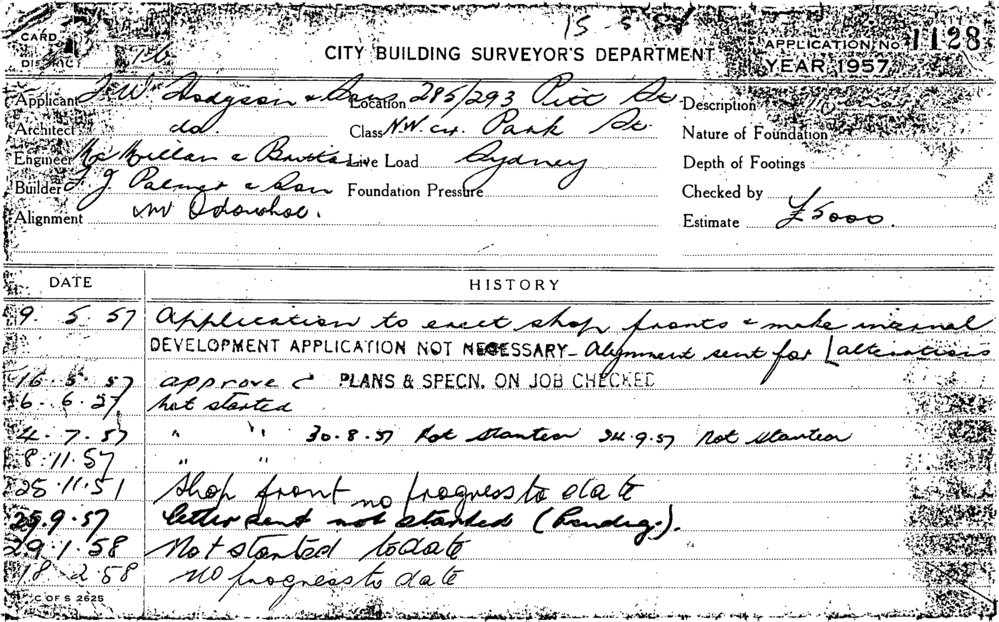 15 5 57
CARD
DISTRICT 156
CITY BUILDING SURVEYOR'S DEPARTMENT
APPLICATION No 1128
YEAR 1957
Applicant F. W. Hodgson & Sons Location 285/293 Pitt St. Description
Architect do. Class N.W. cr. Park St. Nature of Foundation
Engineer McMillan & Live Load Sydney Depth of Footings
Builder F. J. Palmer & Son Foundation Pressure Checked by
Alignment Estimate £5000.
DATE HISTORY
9. 5. 57 Application to erect shop fronts & make internal
DEVELOPMENT APPLICATION NOT NECESSARY - Alignment sent for [alterations
16. 5. 57 approve c PLANS & SPECN. ON JOB CHECKED
6. 6. 57 not started
4. 7. 57 " " 30.8.57 Not started 24.9.57 Not started
8.11.57 " "
25.11.57 Shop front no progress to date
25.9.57 letter sent not started (Pending.).
29.1.58 Not started to date
18 2 58 no progress to date
C OF S 2625